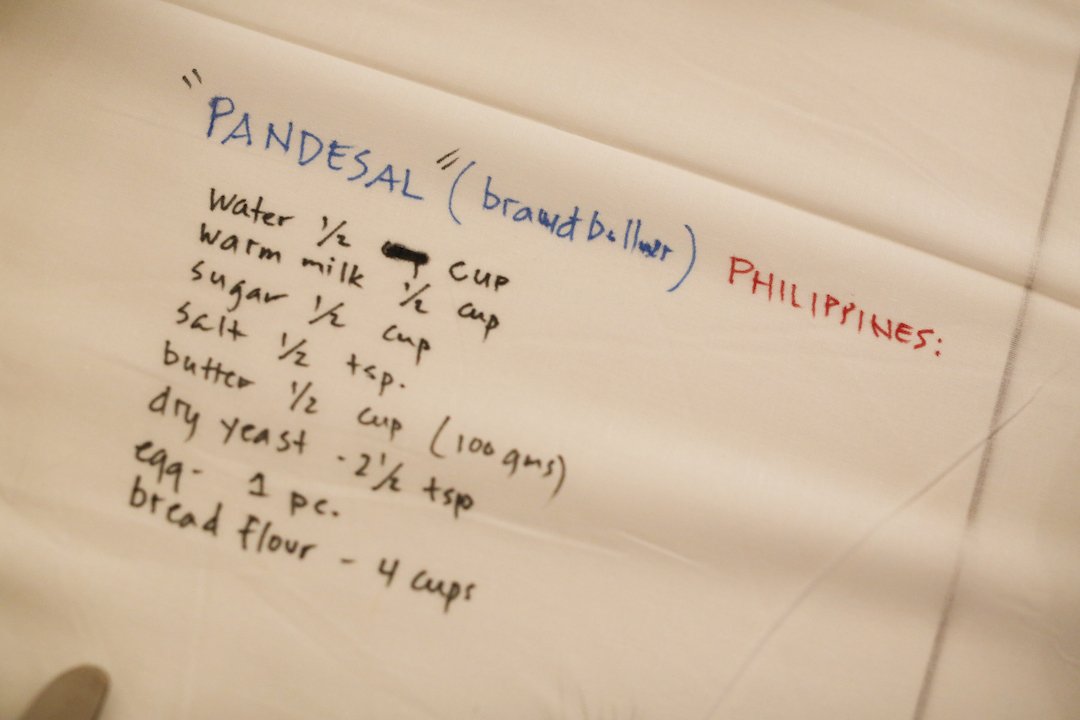 "PANDESAL" ( ) PHILIPPINES:
water 1/2 cup
warm milk 1/2 cup
sugar 1/2 cup
salt 1/2 tsp.
butter 1/2 cup (100 gms)
dry yeast - 2 1/2 tsp
egg - 1 pc.
bread flour - 4 cups